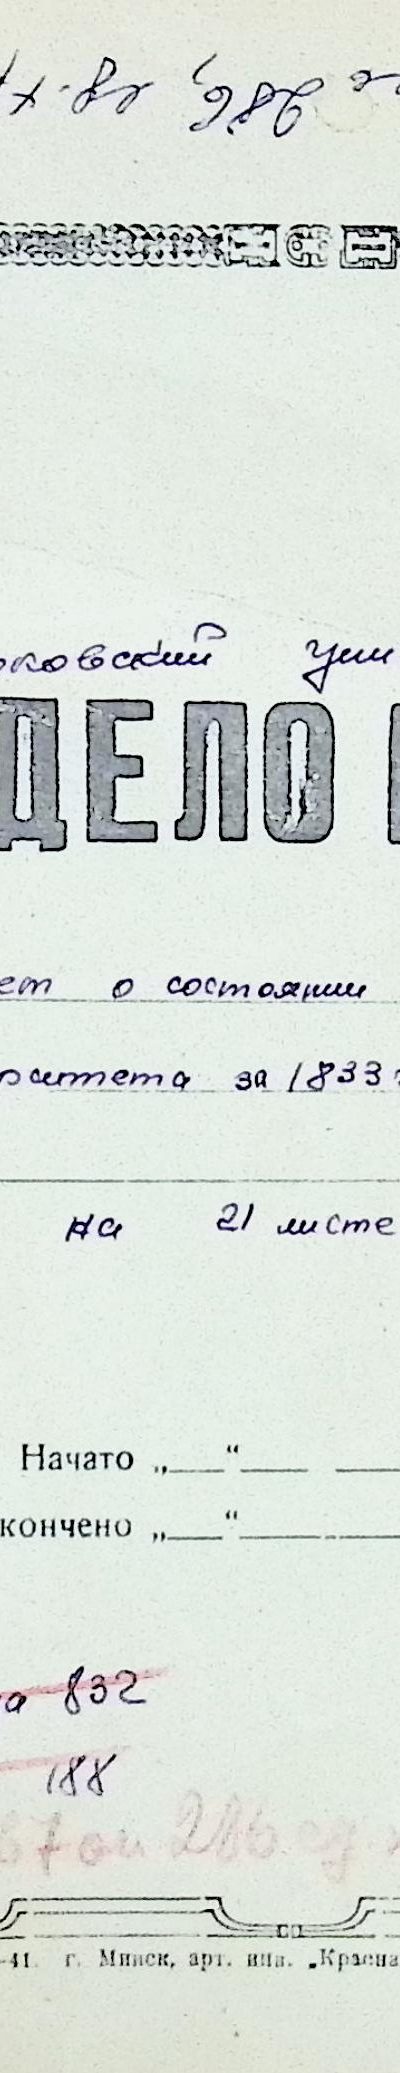 оковский уни
ДЕЛО
ет о состоянии
рситета за 1833 г
на 21 листе
Начато „___“
кончено „___“
а 832
188
286 ед
-41. г. Минск, арт. инв. „Красна